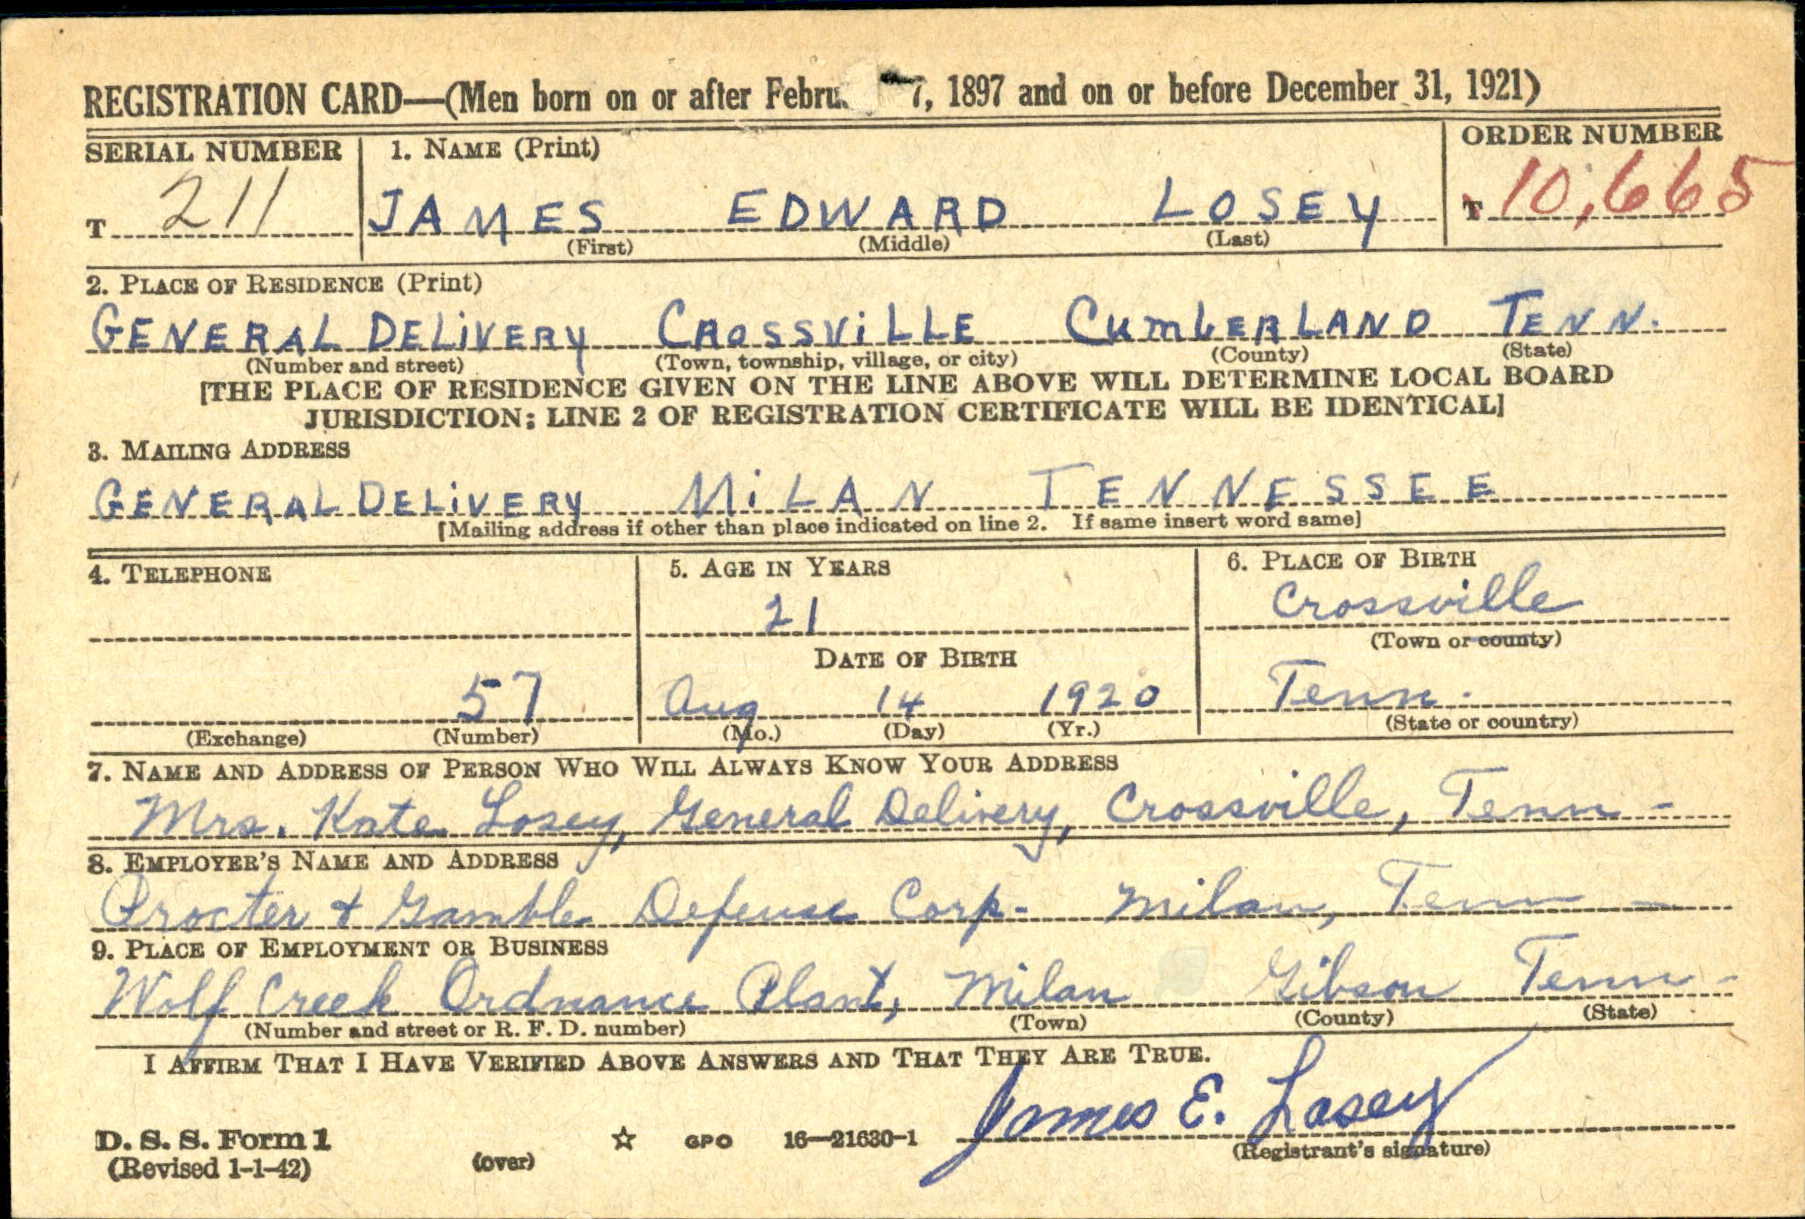 REGISTRATION CARD—(Men born on or after Febru 7, 1897 and on or before December 31, 1921)
SERIAL NUMBER 1. NAME (Print) ORDER NUMBER
T 211 JAMES EDWARD LOSEY T 10,665
(First) (Middle) (Last)
2. PLACE OF RESIDENCE (Print)
GENERAL DELIVERY CROSSVILLE CUMBERLAND TENN.
(Number and street) (Town, township, village, or city) (County) (State)
[THE PLACE OF RESIDENCE GIVEN ON THE LINE ABOVE WILL DETERMINE LOCAL BOARD
JURISDICTION; LINE 2 OF REGISTRATION CERTIFICATE WILL BE IDENTICAL]
3. MAILING ADDRESS
GENERAL DELIVERY MILAN TENNESSEE
[Mailing address if other than place indicated on line 2. If same insert word same]
4. TELEPHONE 5. AGE IN YEARS 6. PLACE OF BIRTH
21 Crossville
(Town or county)
DATE OF BIRTH
57 Aug 14 1920 Tenn.
(Exchange) (Number) (Mo.) (Day) (Yr.) (State or country)
7. NAME AND ADDRESS OF PERSON WHO WILL ALWAYS KNOW YOUR ADDRESS
Mrs. Kate Losey, General Delivery, Crossville, Tenn -
8. EMPLOYER'S NAME AND ADDRESS
Procter + Gamble Defense Corp. Milan, Tenn -
9. PLACE OF EMPLOYMENT OR BUSINESS
Wolf Creek Ordnance Plant, Milan Gibson Tenn -
(Number and street or R. F. D. number) (Town) (County) (State)
I AFFIRM THAT I HAVE VERIFIED ABOVE ANSWERS AND THAT THEY ARE TRUE.
James E. Losey
D. S. S. Form 1 ☆ GPO 16—21630-1
(Registrant's signature)
(Revised 1-1-42) (over)